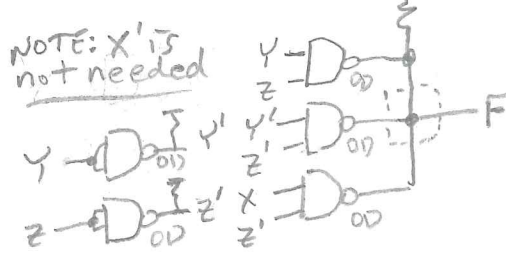 NOTE: X' is
not needed
Y
OD
Y'
Z
OD
Z'
Y
Z
OD
Y'
Z'
OD
X
Z'
OD
F